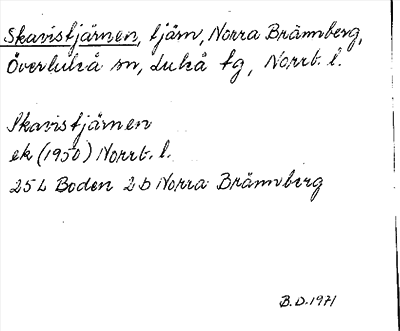 Skavistjärnen, tjärn, Norra Brännberg,
Överluleå sn, Luleå tg, Norrb. l.
Skavistjärnen
ek (1950) Norrb. l.
25 L Boden 2 b Norra Brännberg
B.D. 1971